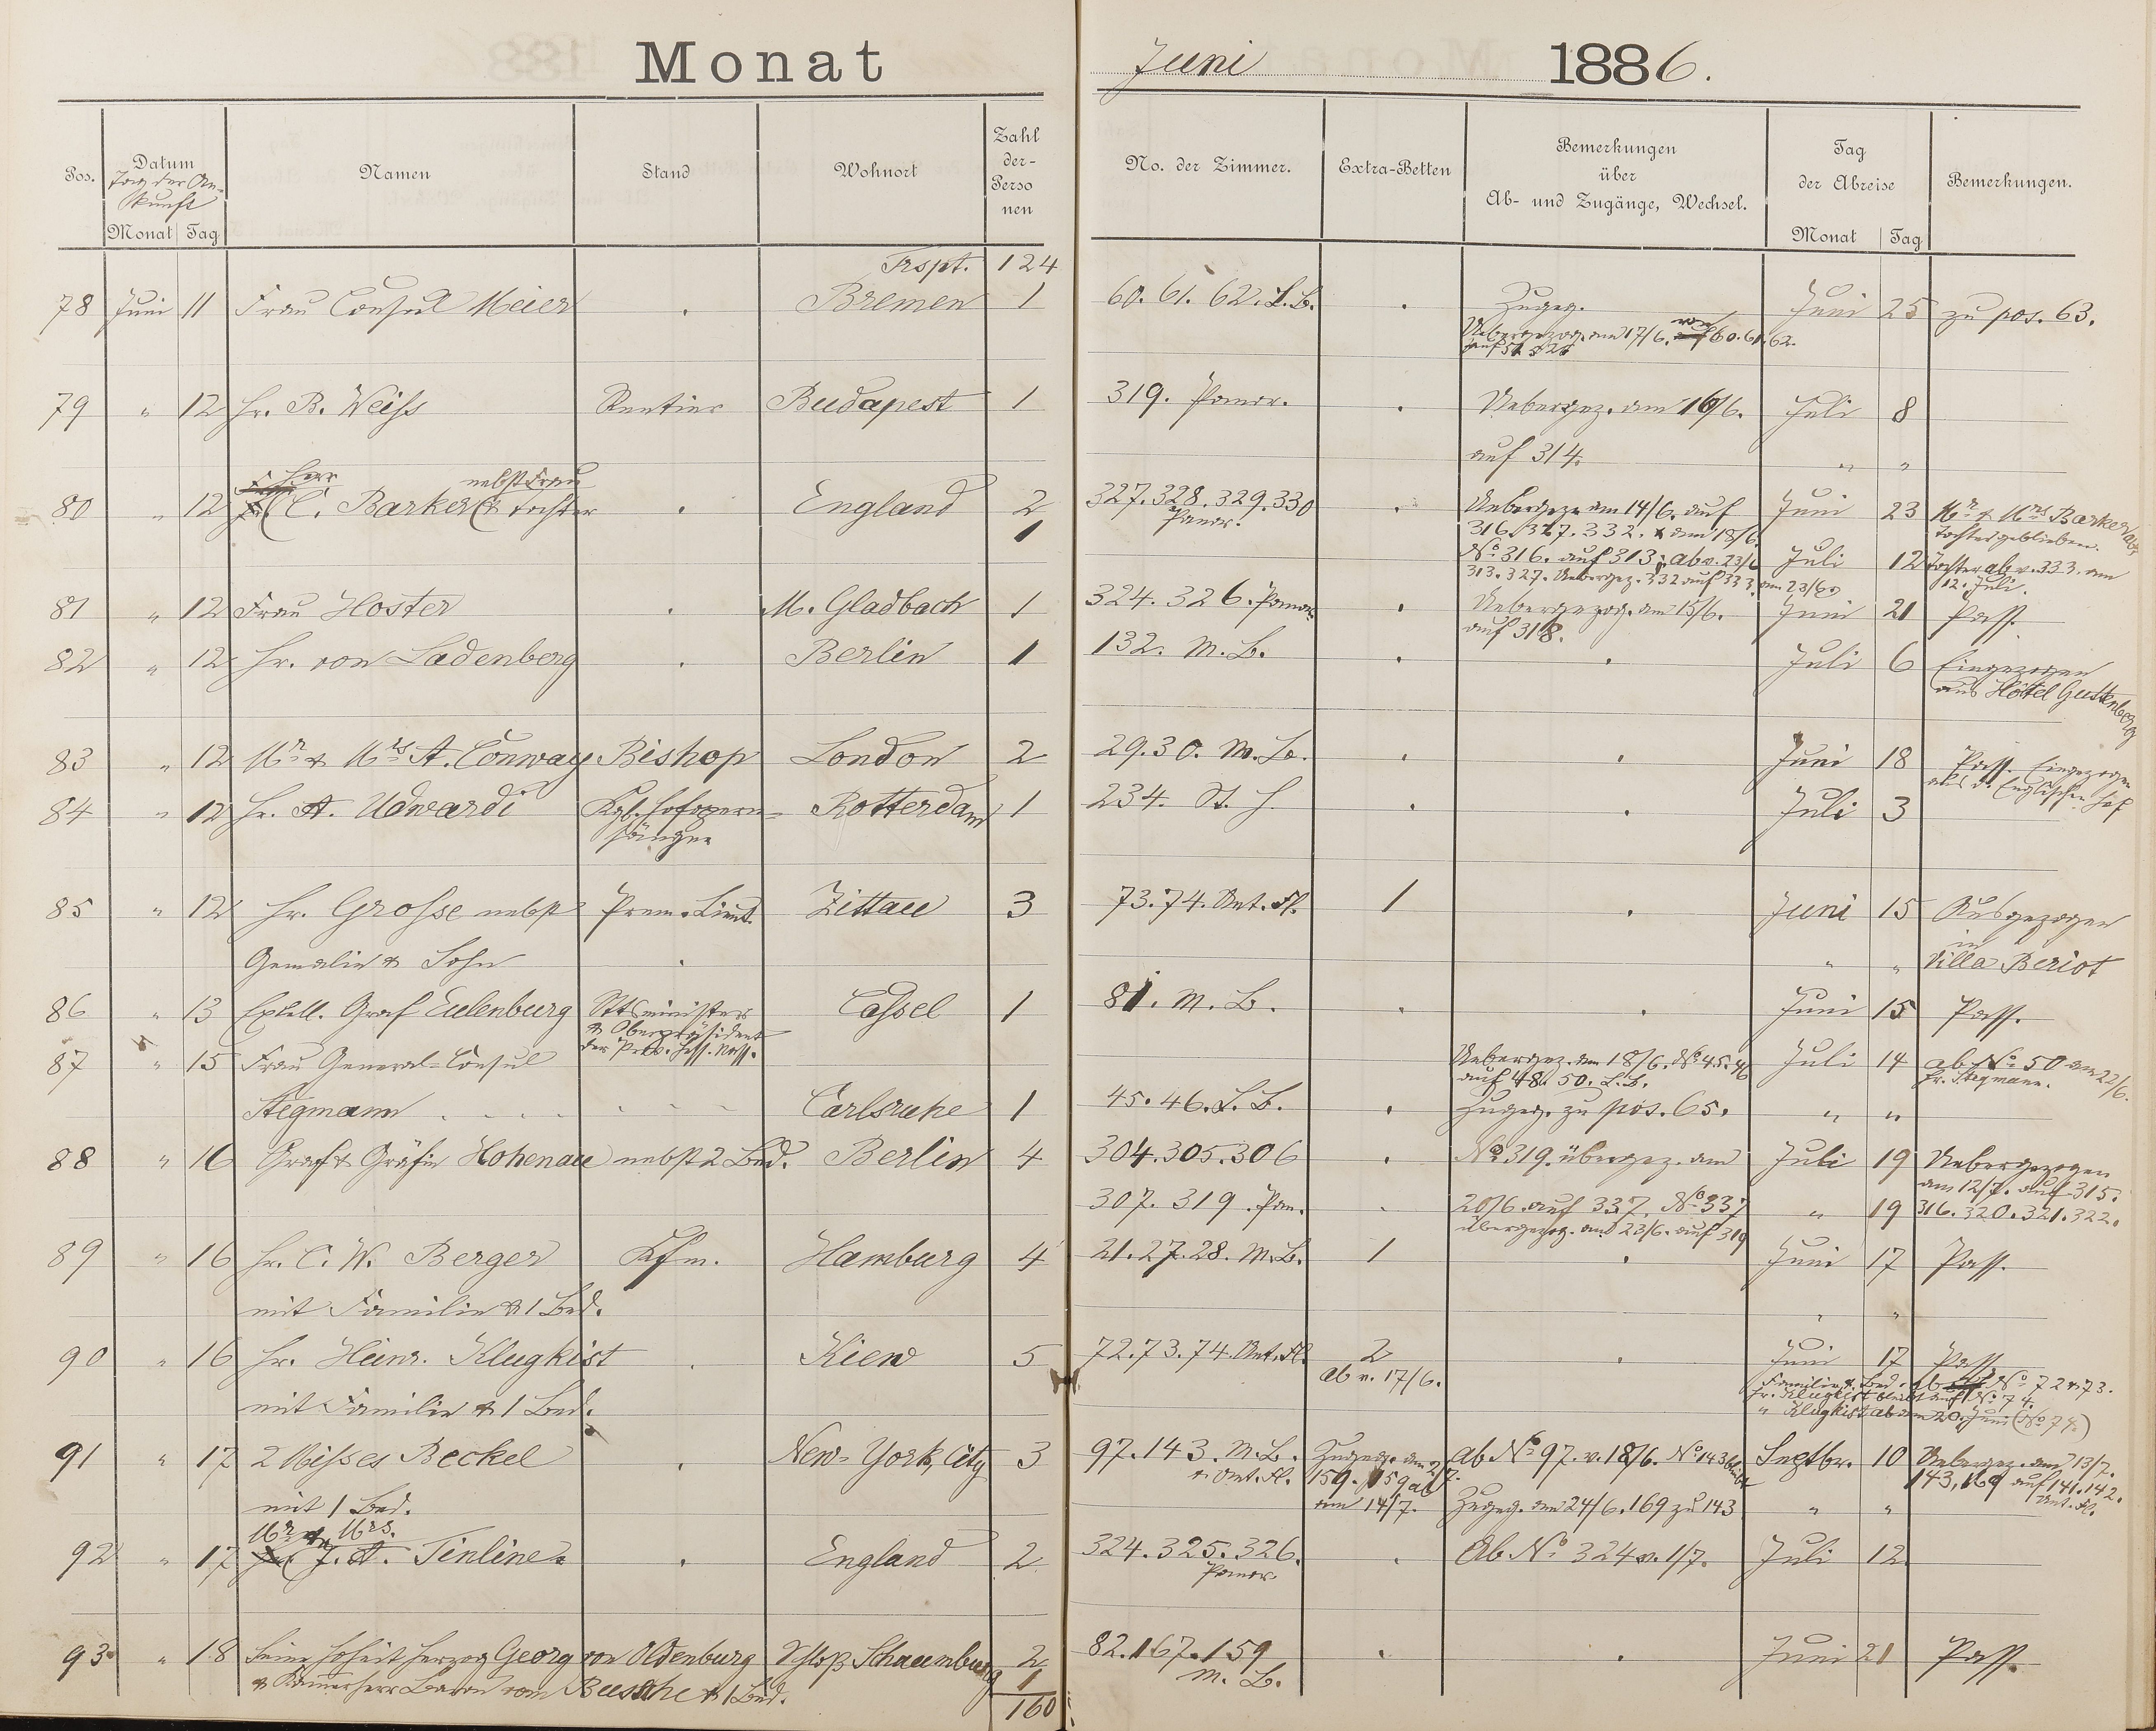 Monat Juni 1886.
Pos. Datum Namen Stand Wohnort Zahl der- Perso nen No. der Zimmer. Extra-Betten Bemerkungen über Ab- und Zugänge, Wechsel. Tag der Abreise Bemerkungen.
Tag der An-
kunft
Monat Tag Monat Tag
Trspt. 124
78 Juni 11 Frau Consul Meier . Bremen 1 60. 61. 62. L.B. . Zugeg. Juni 25 zu pos. 63.
Uebergezog. am 17/6. von 60. 61. 62.
79 " 12 Hr. B. Weiss Rentier Budapest 1 319. Panor. . Uebergez. am 16/6. Juli 8
auf 314. " "
Herr nebst Frau
80 " 12 C. Barker & Tochter . England 2 327. 328. 329. 330 . Uebergez. am 14/6. auf Juni 23 Mr & Mrs Barker ab,
1 Panor. 316. 327. 332. & am 18/6. Tochter geblieben.
No 316. auf 313; ab v. 23/6 Juli 12 Tochter ab v. 333. am
313. 327. Uebergez. 332 auf 333 am 23/6. 12. Juli.
81 " 12 Frau Hoster . M. Gladbach 1 324. 326. Panor. . Uebergezog. am 15/6. Juni 21 Pass.
auf 318.
82 " 12 Hr. von Ladenberg . Berlin 1 132. M. B. . . Juli 6 Eingezogen
aus Hôtel Guttenberg
83 " 12 Mr & Mrs A. Conway Bishop London 2 29. 30. M. B. . . Juni 18 Pass. Eingezogen
aus d. Englischen Hof
84 " 12 Hr. A. Udwardi Kgl. Hofopern- Rotterdam 1 234. St. H. . . Juli 3
sänger
85 " 12 Hr. Grosse nebst Prem. Lieut. Zittau 3 73. 74. Ant. Fl. 1 . Juni 15 Ausgezogen
in
Gemalin & Sohn . " " Villa Beriot
86 " 13 Excell. Graf Eulenburg Sttsminister Cassel 1 81. M. B. . . Juni 15 Pass.
& Oberpräsident
der Prov. Hess. Nass.
87 " 15 Frau General-Consul Uebergez. am 18/6. No 45. 46 Juli 14 ab No 50 am 22/6.
auf 48. 50. L. B. Fr. Stegmann.
Stegmann . . . . Carlsruhe 1 45. 46. L. B. . Zugeg. zu pos. 65. " "
88 " 16 Graf & Gräfin Hohenau nebst 2 Bed. Berlin 4 304. 305. 306 . No 319. übergez. am Juli 19 Uebergezogen
am 12/7. auf 315.
307. 319. Pan. . 20/6. auf 337. No 337 " 19 316. 320. 321. 322.
übergezog. am 23/6. auf 319
89 " 16 Hr. C. W. Berger Kfm. Hamburg 4 21. 27. 28. M. B. 1 . Juni 17 Pass.
mit Familie & 1 Bed. " "
90 " 16 Hr. Heinr. Klugkist . Kiew 5 72. 73. 74. Ant. Fl. 2 . Juni 17 Pass.
ab v. 17/6. Familie & Bed. ab No 72 & 73.
Hr. Klugkist bleibt auf No 74.
mit Familie & 1 Bed. " Klugkist ab am 20. Juni (No 74.)
91 " 17 2 Misses Beckel . New-York, City 3 97. 143. M. B. Zugeg. am 2/7. ab No 97. v. 18/6. No 143 bleibt Septbr. 10 Uebergez. am 13/7.
& Ant. Fl. 159. 159 ab 143, 169 auf 141. 142.
mit 1 Bed. am 14/7. Zugeg. am 24/6. 169 zu 143 " " Ant. Fl.
Mr & Mrs.
92 " 17 J. A. Tinline . England 2 324. 325. 326. . Ab No 324 v. 1/7. Juli 12
Panor.
93 " 18 Seine Hoheit Herzog Georg von Oldenburg Schloß Schaumburg 2 82. 167. 159 . . Juni 21 Pass.
& Kammerherr Baron vom Bussche & 1 Bed. 1 M. B.
160